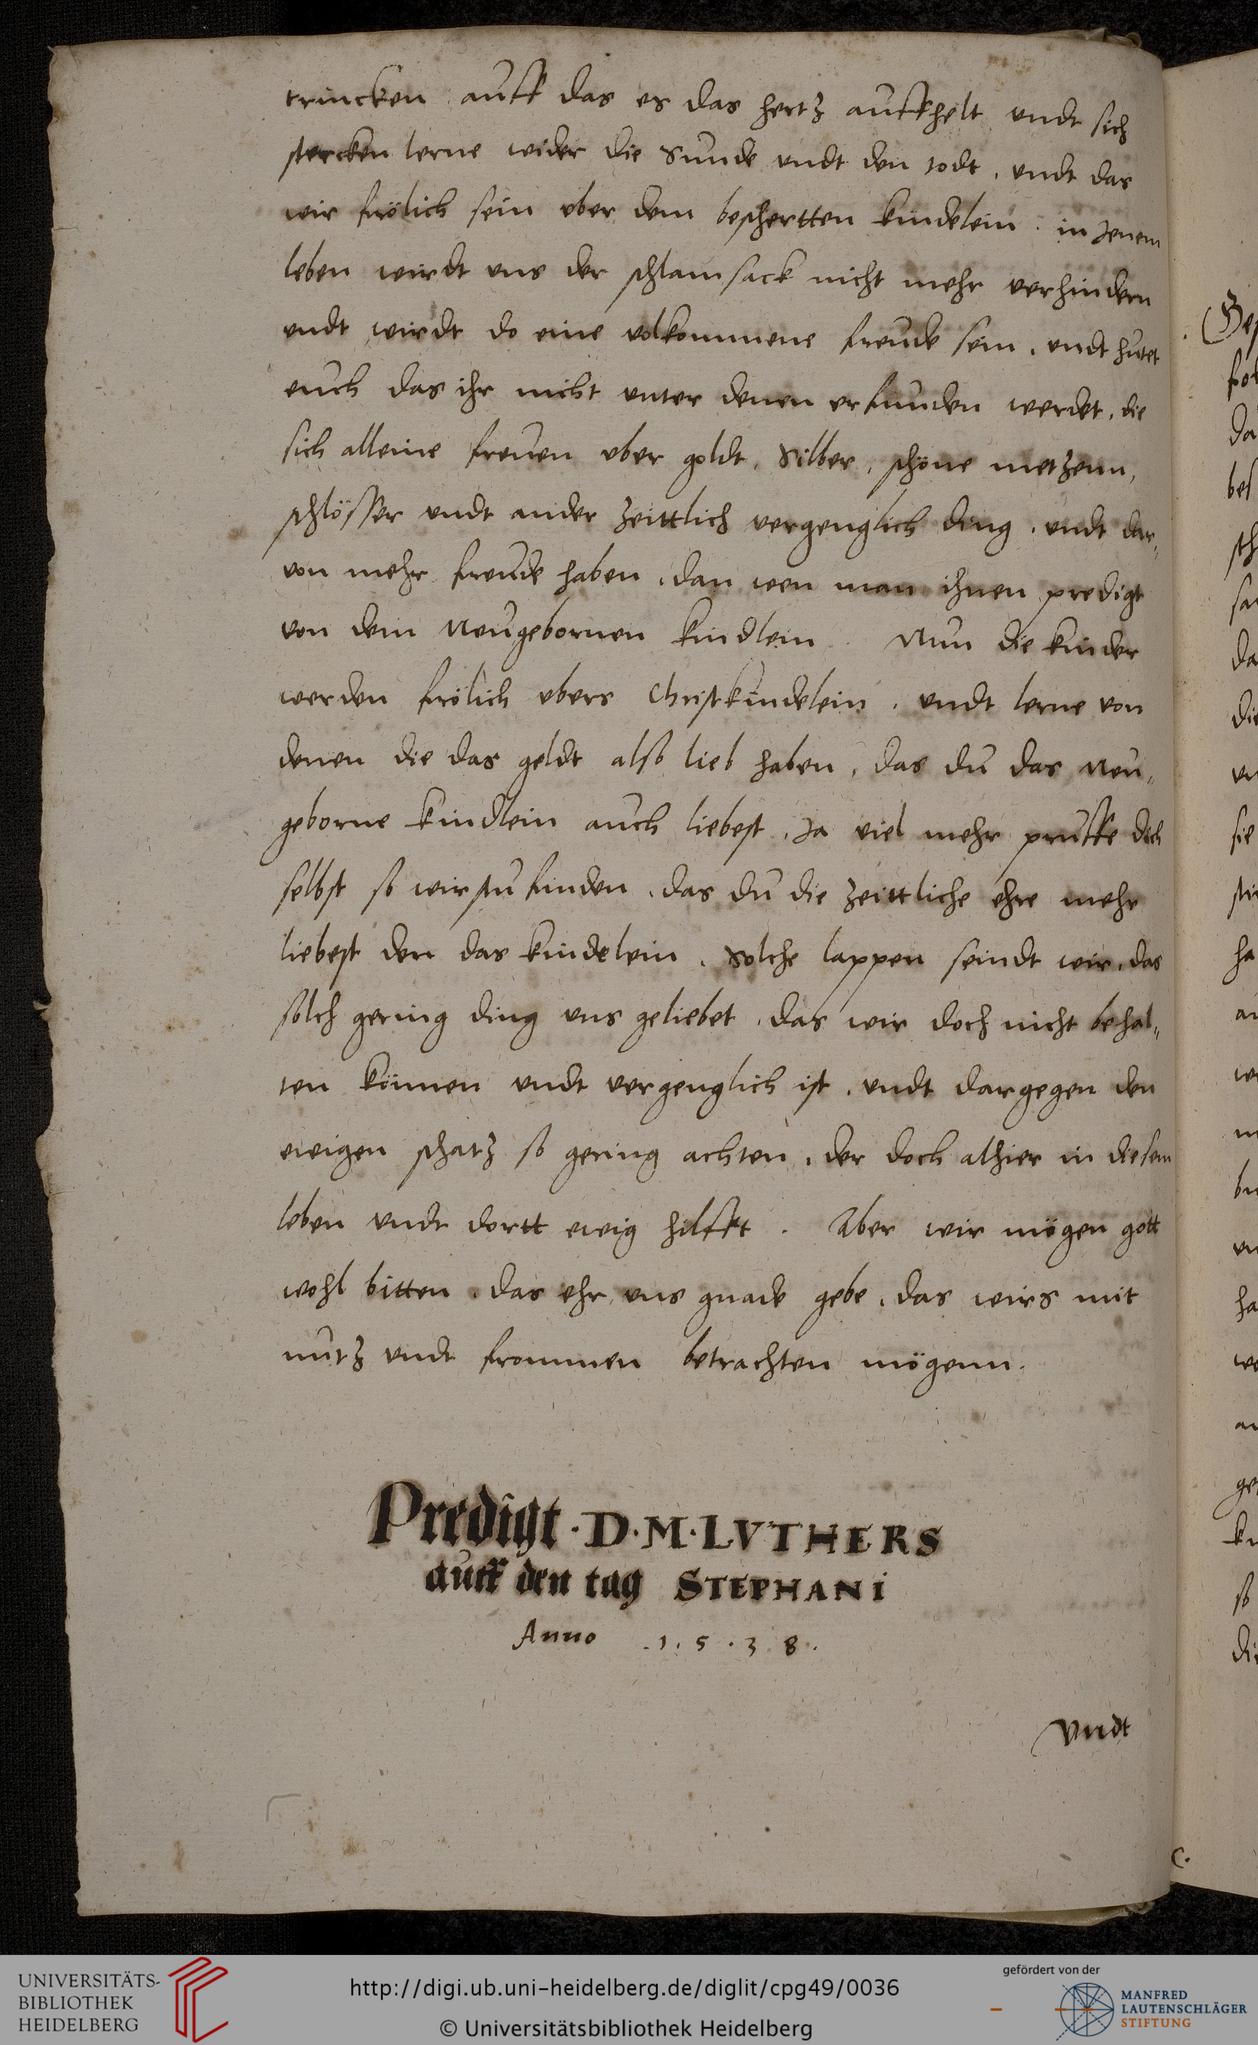 trincken auff das es das hertz auffhelt undt sich
stercken lerne wider die Sunde undt den todt, undt das
wir frölich sein uber dem beschertten kindelein. in Jenem
leben wirdt uns der schlamsack nicht mehr verhindern
undt wirdt do eine volkommene freude sein, undt hutet
euch das ihr nicht unter denen erfunden werdet, die
sich alleine freuen uber goldt, Silber, schöne metzenn,
schlösser undt ander zeittlich vergenglich ding, undt dar,
von mehr freude haben, dan wen man ihnen predigt
von dem Neugebornen kindlein. Nun die kinder
werden frölich ubers Christkindelein, undt lerne von
denen die das geldt also lieb haben, das du das Neu,
geborne kindlein auch liebest, Ja viel mehr pruffe dich
selbst so wirstu finden, das du die zeittliche ehre mehr
liebest den das kindelein, Solche lappen seindt wir, das
solch gering ding uns geliebet, das wir doch nicht behal,,
ten können undt vergenglich ist, undt dargegen den
ewigen schatz so gering achten, der doch alhier in diesem
leben undt dortt ewig hilfft. Aber wir mögen gott
wohl bitten, das ehr uns gnade gebe, das wirs mit
nutz undt frommen betrachten mögenn.
Predigt · D · M · LVTHERS
auff den tag STEPHANi
Anno .1.5.3 8.
Vndt
UNIVERSITÄTS-
BIBLIOTHEK
HEIDELBERG
http://digi.ub.uni-heidelberg.de/diglit/cpg49/0036
© Universitätsbibliothek Heidelberg
gefördert von der
MANFRED
LAUTENSCHLÄGER
STIFTUNG